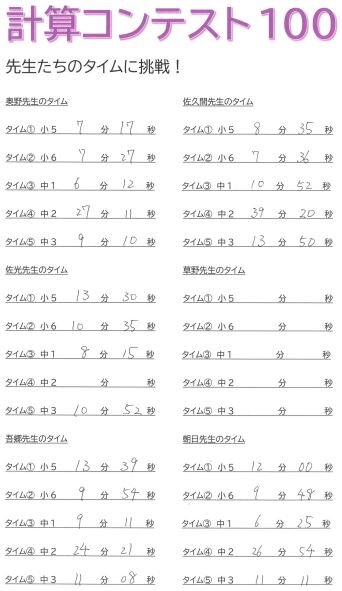 計算コンテスト100
先生たちのタイムに挑戦！
奥野先生のタイム
タイム① 小5 7 分 17 秒
タイム② 小6 7 分 27 秒
タイム③ 中1 6 分 12 秒
タイム④ 中2 27 分 11 秒
タイム⑤ 中3 9 分 10 秒
佐久間先生のタイム
タイム① 小5 8 分 35 秒
タイム② 小6 7 分 36 秒
タイム③ 中1 10 分 52 秒
タイム④ 中2 39 分 20 秒
タイム⑤ 中3 13 分 50 秒
佐光先生のタイム
タイム① 小5 13 分 30 秒
タイム② 小6 10 分 35 秒
タイム③ 中1 8 分 15 秒
タイム④ 中2 分 秒
タイム⑤ 中3 10 分 52 秒
草野先生のタイム
タイム① 小5 分 秒
タイム② 小6 分 秒
タイム③ 中1 分 秒
タイム④ 中2 分 秒
タイム⑤ 中3 分 秒
吾郷先生のタイム
タイム① 小5 13 分 39 秒
タイム② 小6 9 分 54 秒
タイム③ 中1 9 分 11 秒
タイム④ 中2 24 分 21 秒
タイム⑤ 中3 11 分 08 秒
朝日先生のタイム
タイム① 小5 12 分 00 秒
タイム② 小6 9 分 48 秒
タイム③ 中1 6 分 25 秒
タイム④ 中2 26 分 54 秒
タイム⑤ 中3 11 分 11 秒